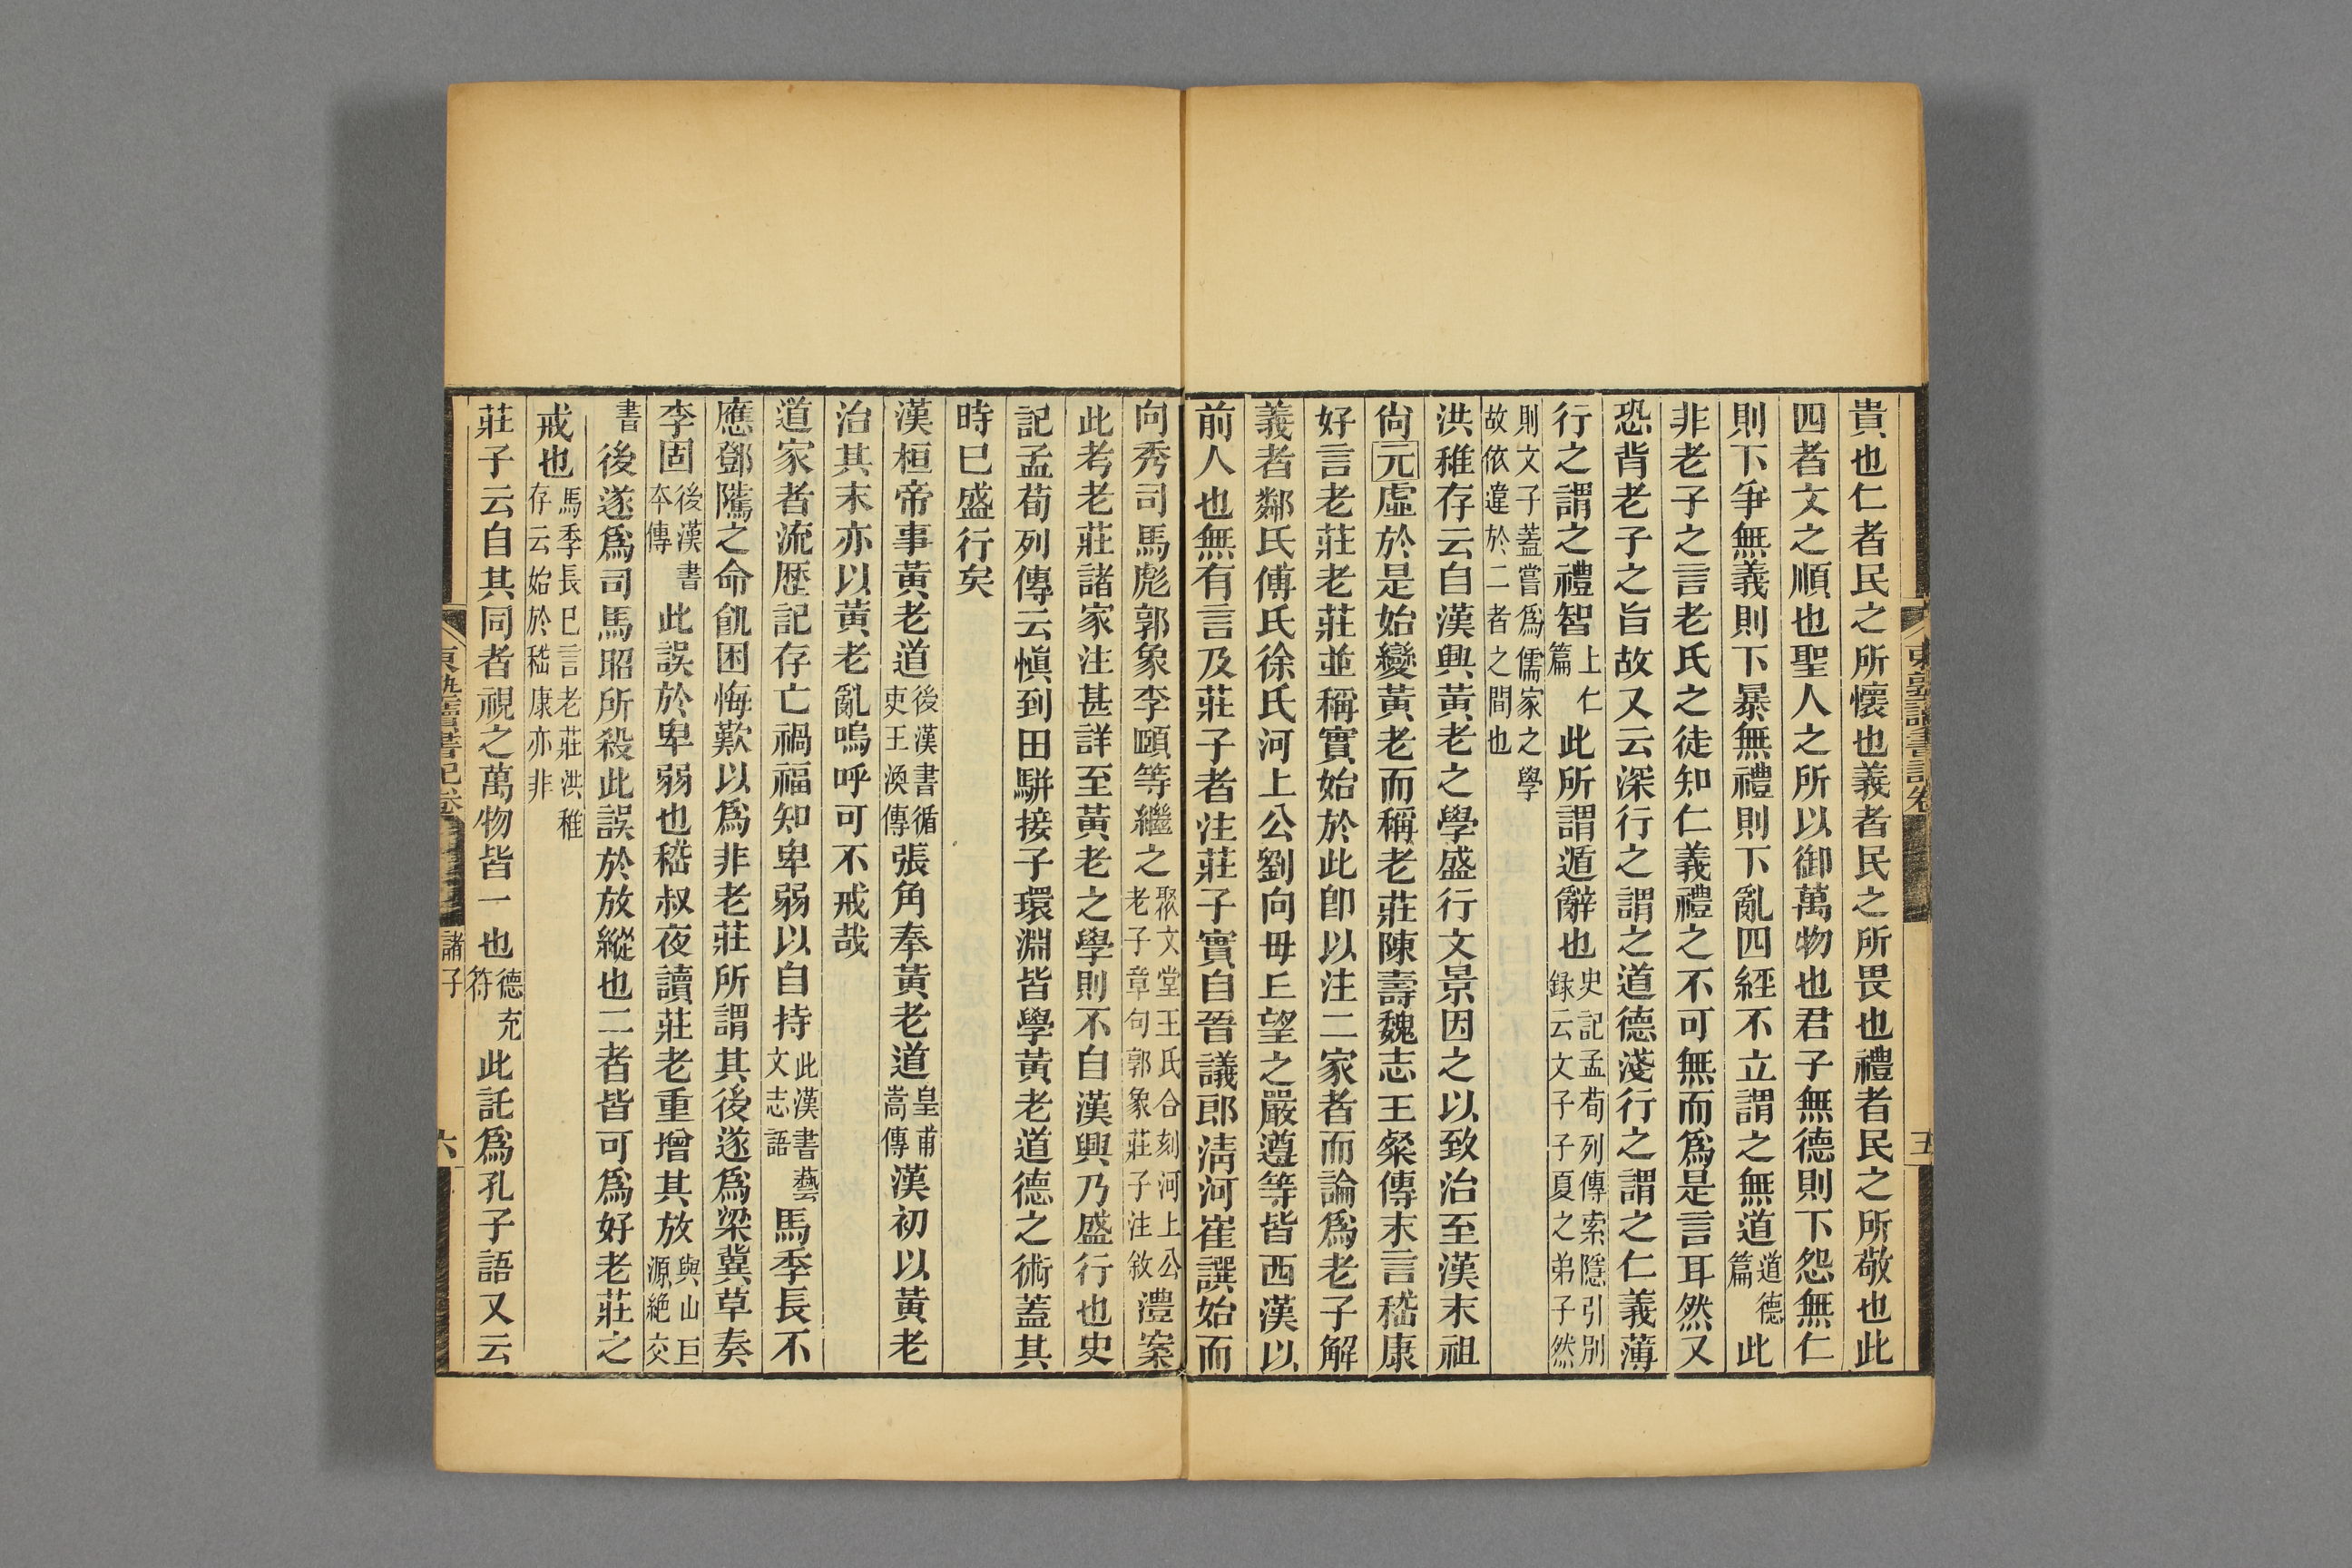 東塾讀書記卷
五
貴也仁者民之所懷也義者民之所畏也禮者民之所敬也此
四者文之順也聖人之所以御萬物也君子無德則下怨無仁
則下爭無義則下暴無禮則下亂四經不立謂之無道道德篇此
非老子之言老氏之徒知仁義禮之不可無而爲是言耳然又
恐背老子之旨故又云深行之謂之道德淺行之謂之仁義薄
行之謂之禮智上仁篇此所謂遁辭也史記孟荀列傳索隱引別録云文子子夏之弟子然
則文子蓋嘗爲儒家之學故依違於二者之間也
洪稚存云自漢興黃老之學盛行文景因之以致治至漢末祖
尙元虛於是始變黃老而稱老莊陳壽魏志王粲傳末言嵇康
好言老莊老莊並稱實始於此卽以注二家者而論爲老子解
義者鄰氏傅氏徐氏河上公劉向毋丘望之嚴遵等皆西漢以
前人也無有言及莊子者注莊子實自晉議郎淸河崔譔始而
向秀司馬彪郭象李頤等繼之聚文堂王氏合刻河上公老子章句郭象莊子注敘澧案
此考老莊諸家注甚詳至黃老之學則不自漢興乃盛行也史
記孟荀列傳云愼到田駢接子環淵皆學黃老道德之術蓋其
時已盛行矣
漢桓帝事黃老道後漢書循吏王渙傳張角奉黃老道皇甫嵩傳漢初以黃老
治其末亦以黃老亂嗚呼可不戒哉
道家者流歷記存亡禍福知卑弱以自持此漢書藝文志語馬季長不
應鄧騭之命飢困悔歎以爲非老莊所謂其後遂爲梁冀草奏
李固後漢書本傳此誤於卑弱也嵇叔夜讀莊老重增其放與山巨源絶交
書後遂爲司馬昭所殺此誤於放縱也二者皆可爲好老莊之
戒也馬季長已言老莊洪稚存云始於嵇康亦非
莊子云自其同者視之萬物皆一也德充符此託爲孔子語又云
東塾讀書記卷
諸子
六